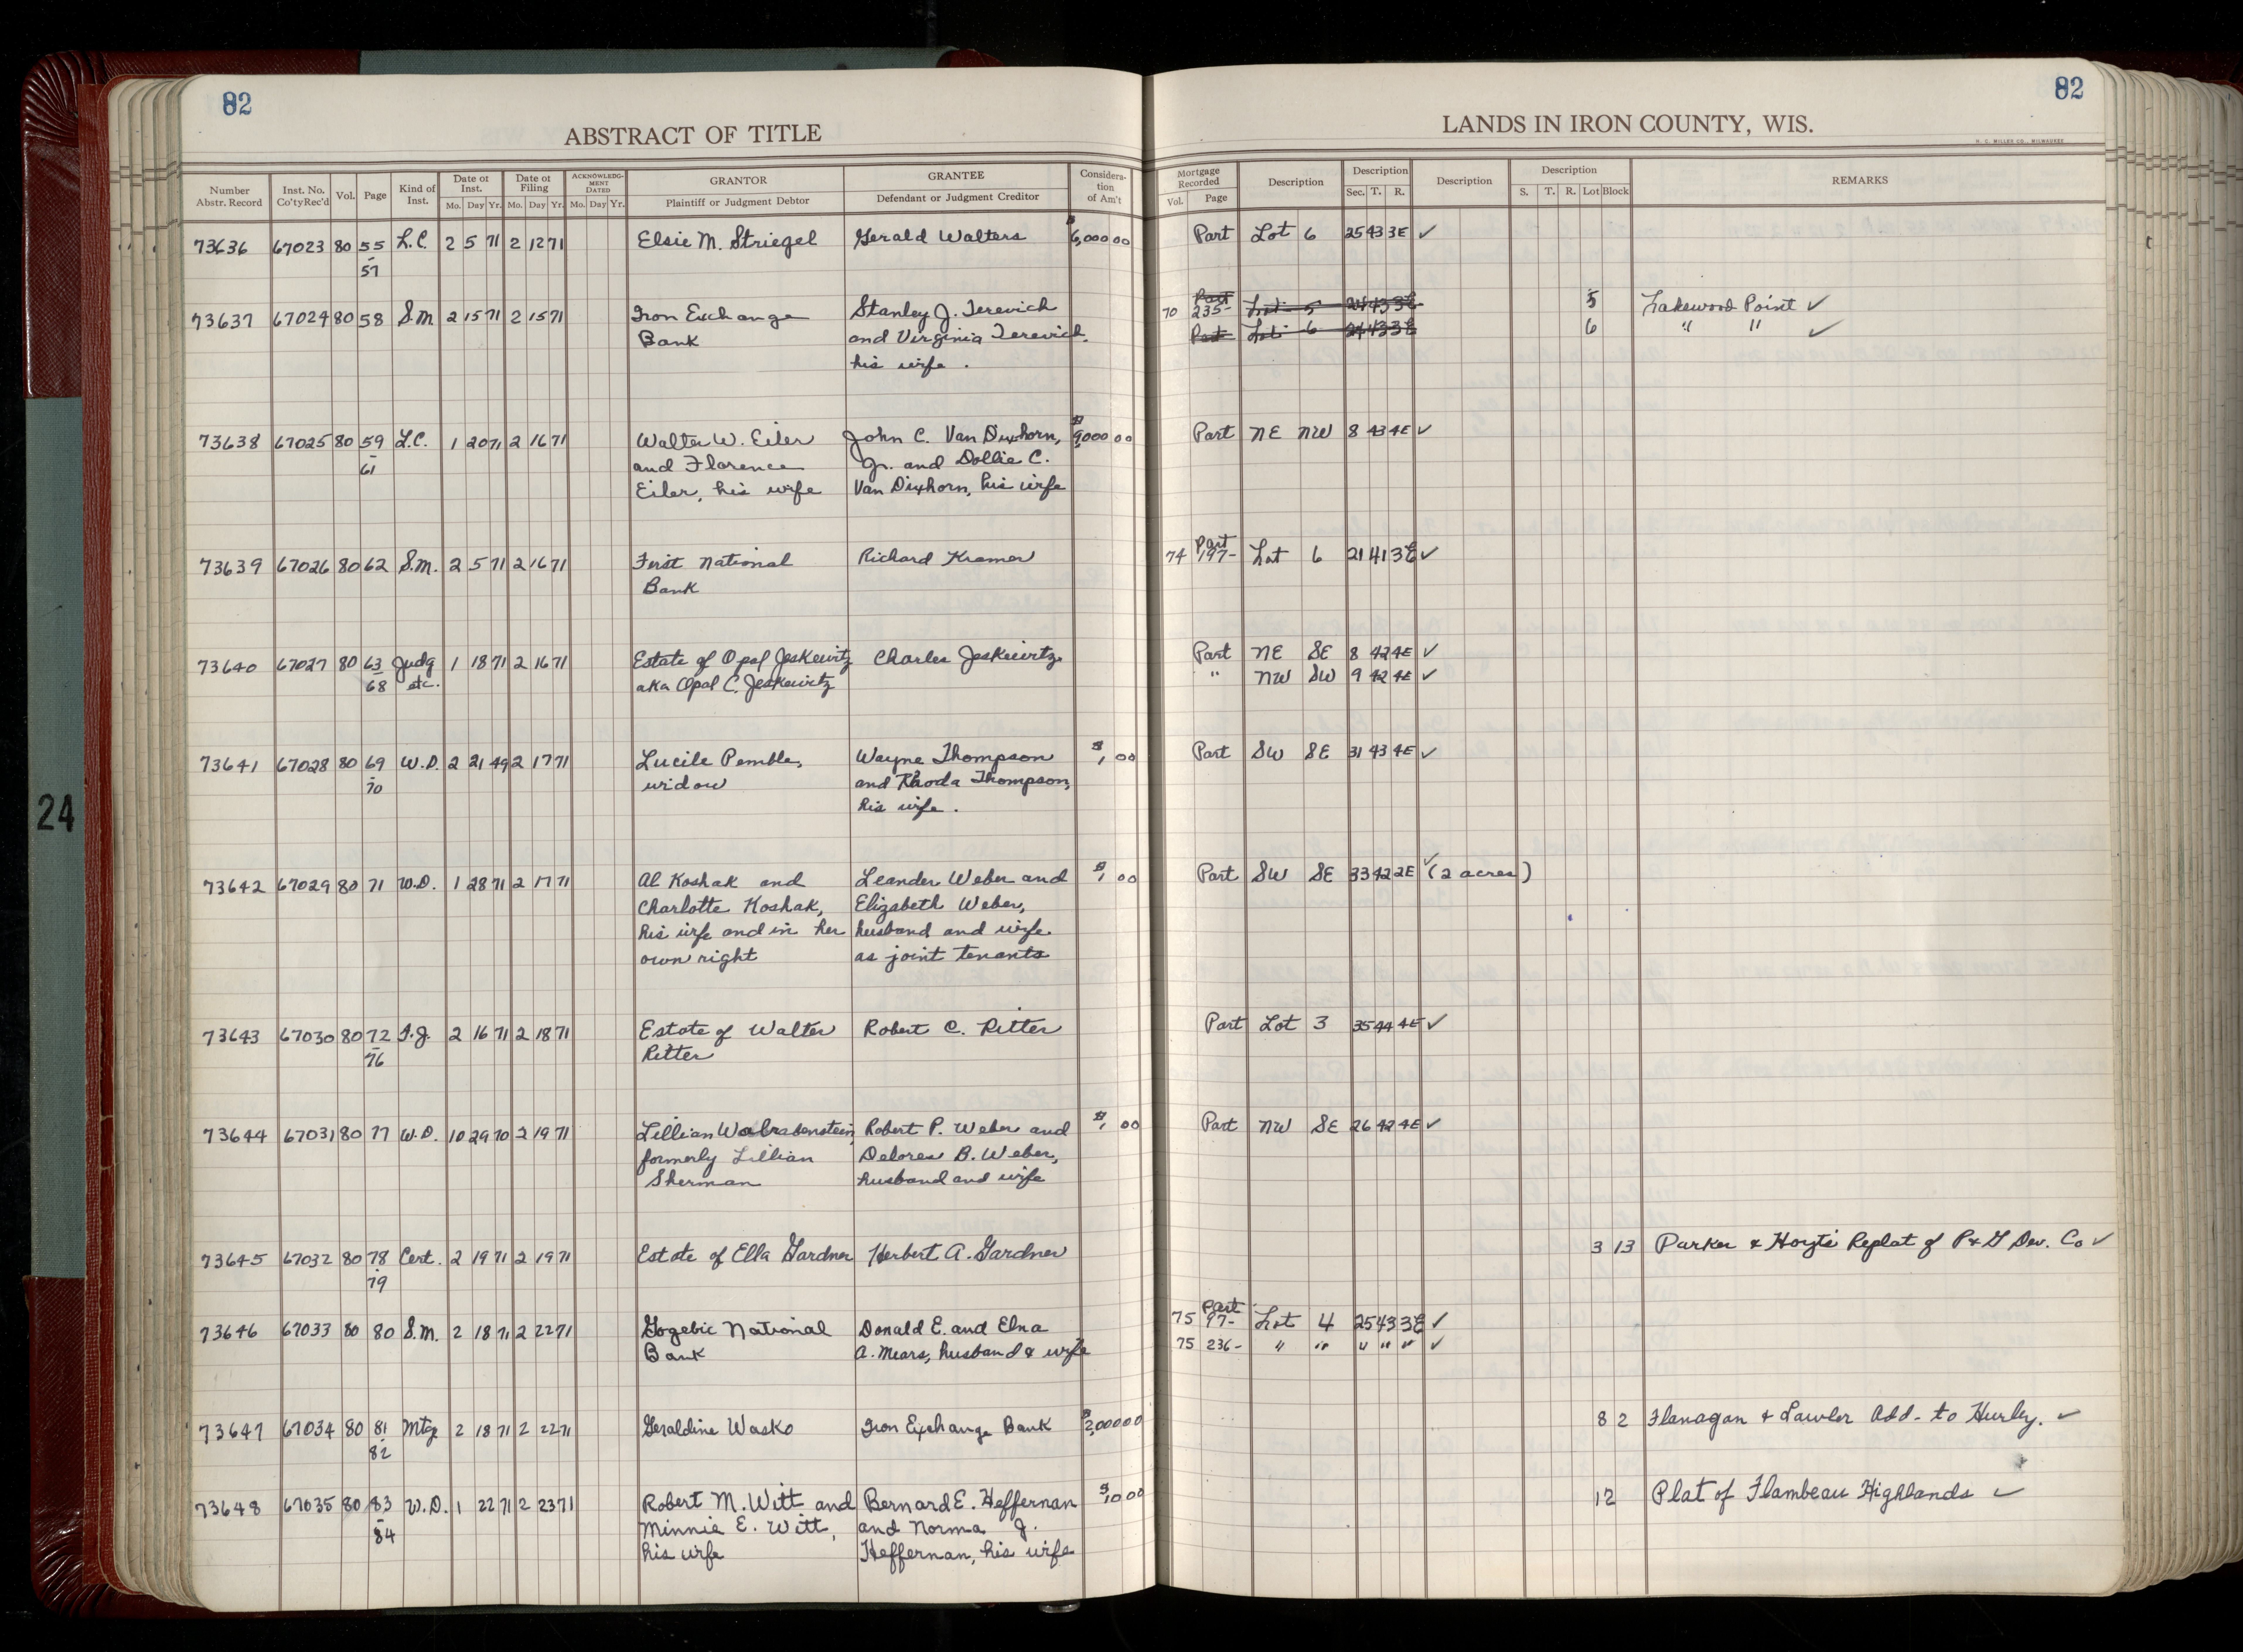 82
82
ABSTRACT OF TITLE
LANDS IN IRON COUNTY, WIS.
H. C. MILLER CO., MILWAUKEE
Number Abstr. Record
Inst. No. Co'ty Rec'd
Vol.
Page
Kind of Inst.
Date of Inst. Mo. Day Yr.
Date of Filing Mo. Day Yr.
ACKNOWLEDGMENT DATED Mo. Day Yr.
GRANTOR Plaintiff or Judgment Debtor
GRANTEE Defendant or Judgment Creditor
Consideration of Am't
Mortgage Recorded Vol. Page
Description
Description Sec. T. R.
Description
Description S. T. R. Lot Block
REMARKS
73636 67023 80 55 L.C. 2 5 71 2 12 71 Elsie M. Striegel Gerald Walters $6,000 00 Part Lot 6 25 43 3E ✓
- 57
73637 67024 80 58 S.M 2 15 71 2 15 71 Iron Exchange Stanley J. Terevich 70 Part 235- Lot 5 24 43 3E 5 Lakewood Point ✓
Bank and Virginia Terevich, Part Lot 6 24 43 3E 6 " " ✓
his wife.
73638 67025 80 59 L.C. 1 20 71 2 16 71 Walter W. Eiler John C. Van Dixhorn, $9,000 00 Part NE NW 8 43 4E ✓
- 61 and Florence Jr. and Dollie C.
Eiler, his wife Van Dixhorn, his wife
73639 67026 80 62 S.M. 2 5 71 2 16 71 First National Richard Kramer 74 Part 197- Lot 6 21 41 3E ✓
Bank
73640 67027 80 63 Judg 1 18 71 2 16 71 Estate of Opal Jeskewitz Charles Jeskewitz Part NE SE 8 42 4E ✓
- 68 etc. aka Opal C. Jeskewitz " NW SW 9 42 4E ✓
73641 67028 80 69 W.D. 2 21 49 2 17 71 Lucile Pemble, Wayne Thompson $1, 00 Part SW SE 31 43 4E ✓
- 70 widow and Rhoda Thompson,
his wife.
73642 67029 80 71 W.D. 1 28 71 2 17 71 Al Koshak and Leander Weber and $1 00 Part SW SE 33 42 2E ✓ (2 acres)
Charlotte Koshak, Elizabeth Weber,
his wife and in her husband and wife
own right as joint tenants
73643 67030 80 72 T.J. 2 16 71 2 18 71 Estate of Walter Robert C. Ritter Part Lot 3 35 44 4E ✓
- 76 Ritter
73644 67031 80 77 W.D. 10 29 70 2 19 71 Lillian Robert P. Weber and $1, 00 Part NW SE 26 42 4E ✓
formerly Lillian Delores B. Weber,
Sherman husband and wife
73645 67032 80 78 Cert. 2 19 71 2 19 71 Estate of Ella Gardner Herbert A. Gardner 3 13 Parker & Hoyt's Replat of P & G Dev. Co ✓
- 79
73646 67033 80 80 S.M. 2 18 71 2 22 71 Gogebic National Donald E. and Elna 75 Part 97- Lot 4 25 43 3E ✓
Bank A. Mears, husband & wife 75 236- " " " " " ✓
73647 67034 80 81 Mtg 2 18 71 2 22 71 Geraldine Wasko Iron Exchange Bank $2,000 00 8 2 Flanagan & Lawler Add- to Hurley. ✓
- 82
73648 67035 80 83 W.D. 1 22 71 2 23 71 Robert M. Witt and Bernard E. Heffernan $10 00 12 Plat of Flambeau Highlands ✓
- 84 Minnie E. Witt, and Norma J.
his wife Heffernan, his wife
24